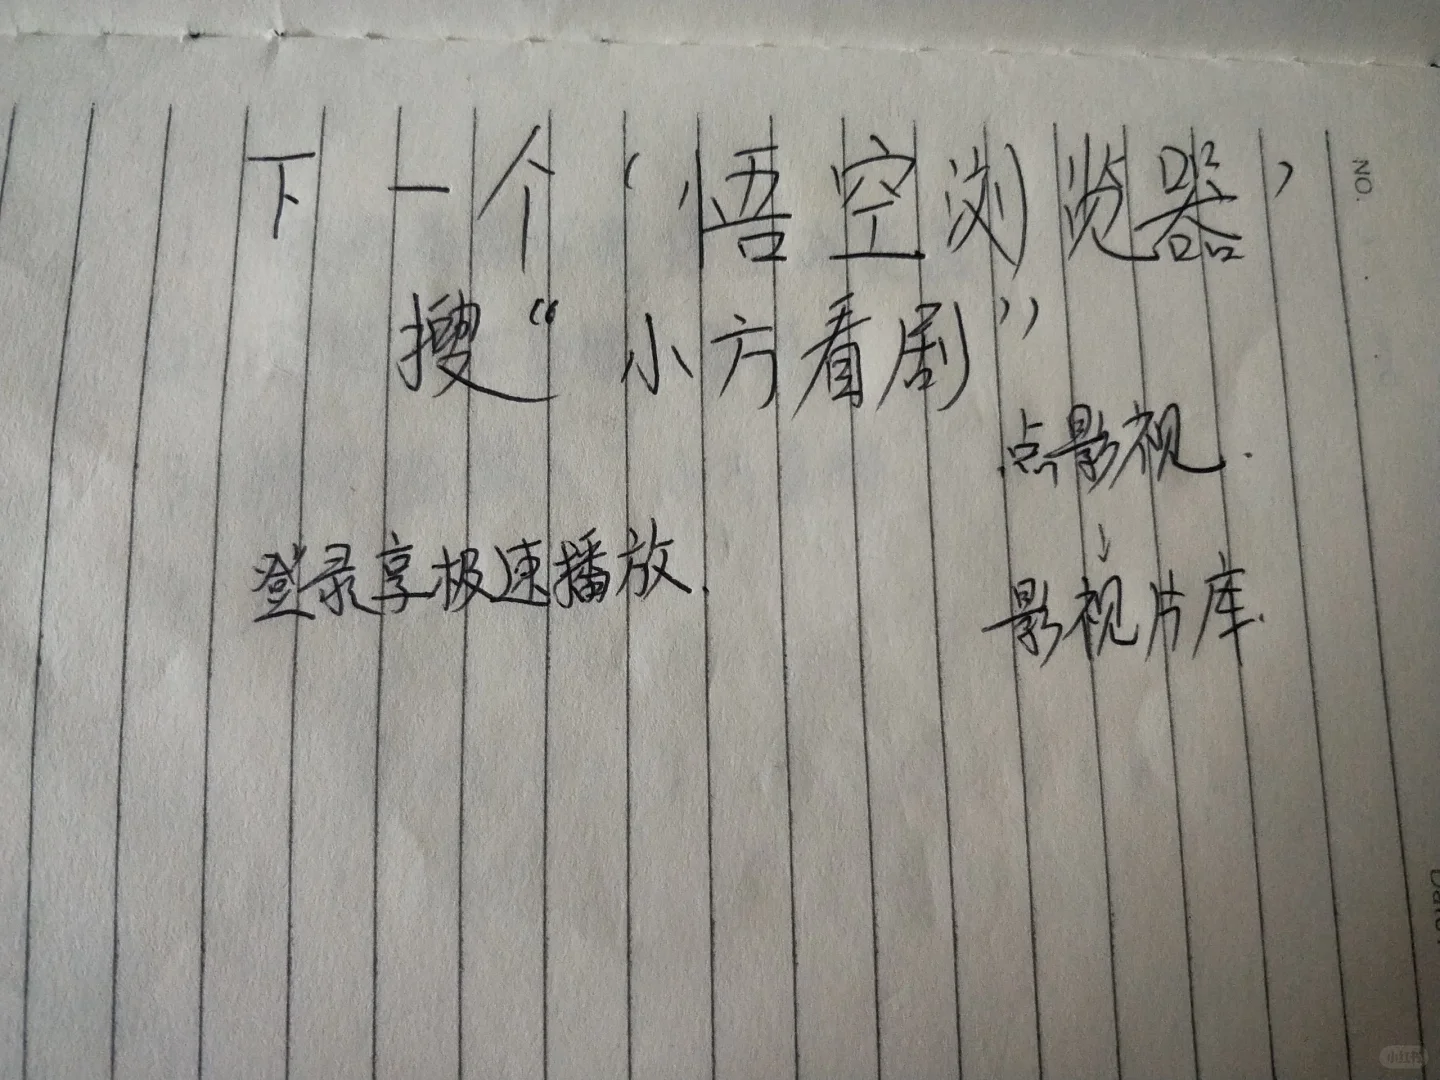 下一个‘悟空浏览器’
搜“小方看剧”
点影视.
↓
登录享极速播放.
影视片库.
NO.
Date.
小红书